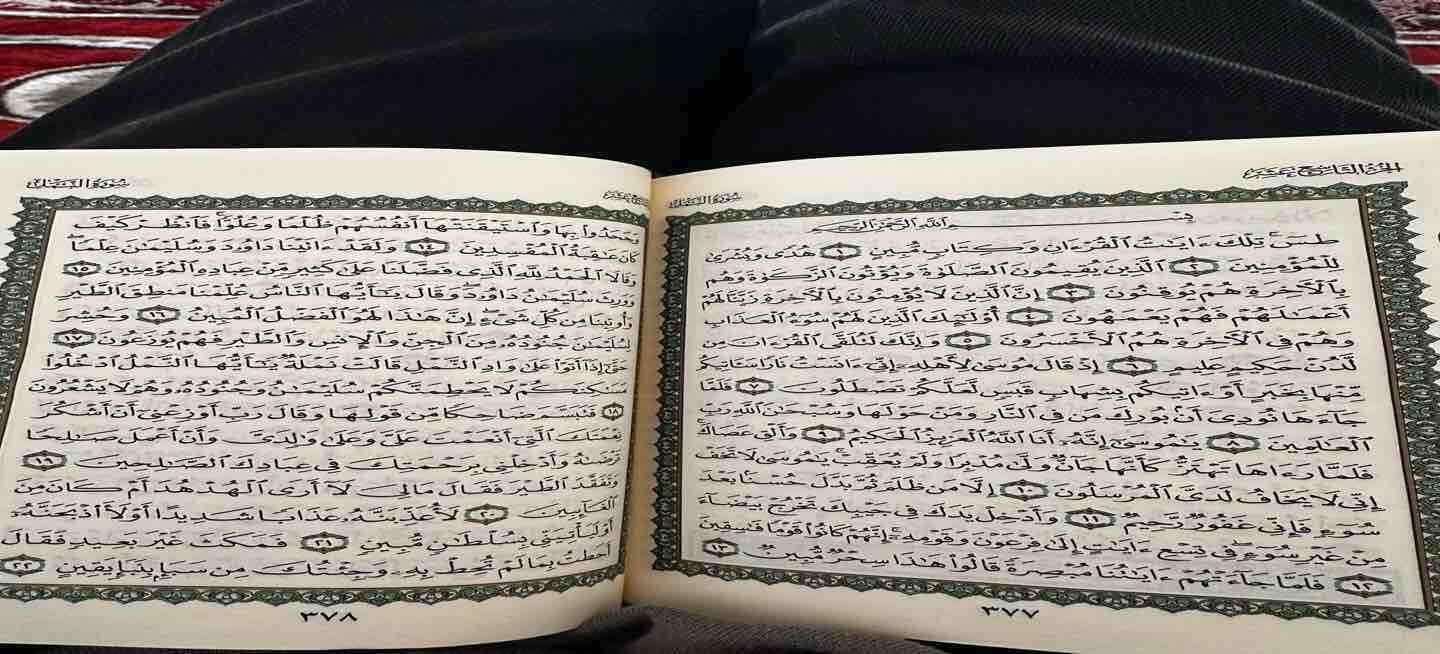 الجزء التاسع عشر
سورة النمل
بِسْمِ ٱللَّهِ ٱلرَّحْمَٰنِ ٱلرَّحِيمِ
طسٓ ۚ تِلْكَ ءَايَٰتُ ٱلْقُرْءَانِ وَكِتَابٍ مُّبِينٍ ١ هُدًى وَبُشْرَىٰ
لِلْمُؤْمِنِينَ ٢ ٱلَّذِينَ يُقِيمُونَ ٱلصَّلَوٰةَ وَيُؤْتُونَ ٱلزَّكَوٰةَ وَهُم
بِٱلْءَاخِرَةِ هُمْ يُوقِنُونَ ٣ إِنَّ ٱلَّذِينَ لَا يُؤْمِنُونَ بِٱلْءَاخِرَةِ زَيَّنَّا لَهُمْ
أَعْمَٰلَهُمْ فَهُمْ يَعْمَهُونَ ٤ أُو۟لَٰٓئِكَ ٱلَّذِينَ لَهُمْ سُوٓءُ ٱلْعَذَابِ
وَهُمْ فِى ٱلْءَاخِرَةِ هُمُ ٱلْأَخْسَرُونَ ٥ وَإِنَّكَ لَتُلَقَّى ٱلْقُرْءَانَ مِن
لَّدُنْ حَكِيمٍ عَلِيمٍ ٦ إِذْ قَالَ مُوسَىٰ لِأَهْلِهِۦٓ إِنِّىٓ ءَانَسْتُ نَارًا سَـَٔاتِيكُم
مِّنْهَا بِخَبَرٍ أَوْ ءَاتِيكُم بِشِهَابٍ قَبَسٍ لَّعَلَّكُمْ تَصْطَلُونَ ٧ فَلَمَّا
جَآءَهَا نُودِىَ أَنۢ بُورِكَ مَن فِى ٱلنَّارِ وَمَنْ حَوْلَهَا وَسُبْحَٰنَ ٱللَّهِ رَبِّ
ٱلْعَٰلَمِينَ ٨ يَٰمُوسَىٰٓ إِنَّهُۥٓ أَنَا ٱللَّهُ ٱلْعَزِيزُ ٱلْحَكِيمُ ٩ وَأَلْقِ عَصَاكَ ۚ
فَلَمَّا رَءَاهَا تَهْتَزُّ كَأَنَّهَا جَآنٌّ وَلَّىٰ مُدْبِرًا وَلَمْ يُعَقِّبْ ۚ يَٰمُوسَىٰ لَا تَخَفْ
إِنِّى لَا يَخَافُ لَدَىَّ ٱلْمُرْسَلُونَ ١٠ إِلَّا مَن ظَلَمَ ثُمَّ بَدَّلَ حُسْنًۢا بَعْدَ
سُوٓءٍ فَإِنِّى غَفُورٌ رَّحِيمٌ ١١ وَأَدْخِلْ يَدَكَ فِى جَيْبِكَ تَخْرُجْ بَيْضَآءَ
مِنْ غَيْرِ سُوٓءٍ ۖ فِى تِسْعِ ءَايَٰتٍ إِلَىٰ فِرْعَوْنَ وَقَوْمِهِۦٓ ۚ إِنَّهُمْ كَانُوا۟ قَوْمًا فَٰسِقِينَ
١٢ فَلَمَّا جَآءَتْهُمْ ءَايَٰتُنَا مُبْصِرَةً قَالُوا۟ هَٰذَا سِحْرٌ مُّبِينٌ ١٣
٣٧٧
سورة النمل
وَجَحَدُوا۟ بِهَا وَٱسْتَيْقَنَتْهَآ أَنفُسُهُمْ ظُلْمًا وَعُلُوًّا ۚ فَٱنظُرْ كَيْفَ
كَانَ عَٰقِبَةُ ٱلْمُفْسِدِينَ ١٤ وَلَقَدْ ءَاتَيْنَا دَاوُۥدَ وَسُلَيْمَٰنَ عِلْمًا ۖ
وَقَالَا ٱلْحَمْدُ لِلَّهِ ٱلَّذِى فَضَّلَنَا عَلَىٰ كَثِيرٍ مِّنْ عِبَادِهِ ٱلْمُؤْمِنِينَ ١٥
وَوَرِثَ سُلَيْمَٰنُ دَاوُۥدَ ۖ وَقَالَ يَٰٓأَيُّهَا ٱلنَّاسُ عُلِّمْنَا مَنطِقَ ٱلطَّيْرِ
وَأُوتِينَا مِن كُلِّ شَىْءٍ ۖ إِنَّ هَٰذَا لَهُوَ ٱلْفَضْلُ ٱلْمُبِينُ ١٦ وَحُشِرَ
لِسُلَيْمَٰنَ جُنُودُهُۥ مِنَ ٱلْجِنِّ وَٱلْإِنسِ وَٱلطَّيْرِ فَهُمْ يُوزَعُونَ ١٧
حَتَّىٰٓ إِذَآ أَتَوْا۟ عَلَىٰ وَادِ ٱلنَّمْلِ قَالَتْ نَمْلَةٌ يَٰٓأَيُّهَا ٱلنَّمْلُ ٱدْخُلُوا۟
مَسَٰكِنَكُمْ لَا يَحْطِمَنَّكُمْ سُلَيْمَٰنُ وَجُنُودُهُۥ وَهُمْ لَا يَشْعُرُونَ
١٨ فَتَبَسَّمَ ضَاحِكًا مِّن قَوْلِهَا وَقَالَ رَبِّ أَوْزِعْنِىٓ أَنْ أَشْكُرَ
نِعْمَتَكَ ٱلَّتِىٓ أَنْعَمْتَ عَلَىَّ وَعَلَىٰ وَٰلِدَىَّ وَأَنْ أَعْمَلَ صَٰلِحًا
تَرْضَىٰهُ وَأَدْخِلْنِى بِرَحْمَتِكَ فِى عِبَادِكَ ٱلصَّٰلِحِينَ ١٩
وَتَفَقَّدَ ٱلطَّيْرَ فَقَالَ مَا لِىَ لَآ أَرَى ٱلْهُدْهُدَ أَمْ كَانَ مِنَ
ٱلْغَآئِبِينَ ٢٠ لَأُعَذِّبَنَّهُۥ عَذَابًا شَدِيدًا أَوْ لَأَا۟ذْبَحَنَّهُۥٓ
أَوْ لَيَأْتِيَنِّى بِسُلْطَٰنٍ مُّبِينٍ ٢١ فَمَكَثَ غَيْرَ بَعِيدٍ فَقَالَ
أَحَطتُ بِمَا لَمْ تُحِطْ بِهِۦ وَجِئْتُكَ مِن سَبَإٍۭ بِنَبَإٍ يَقِينٍ ٢٢
٣٧٨